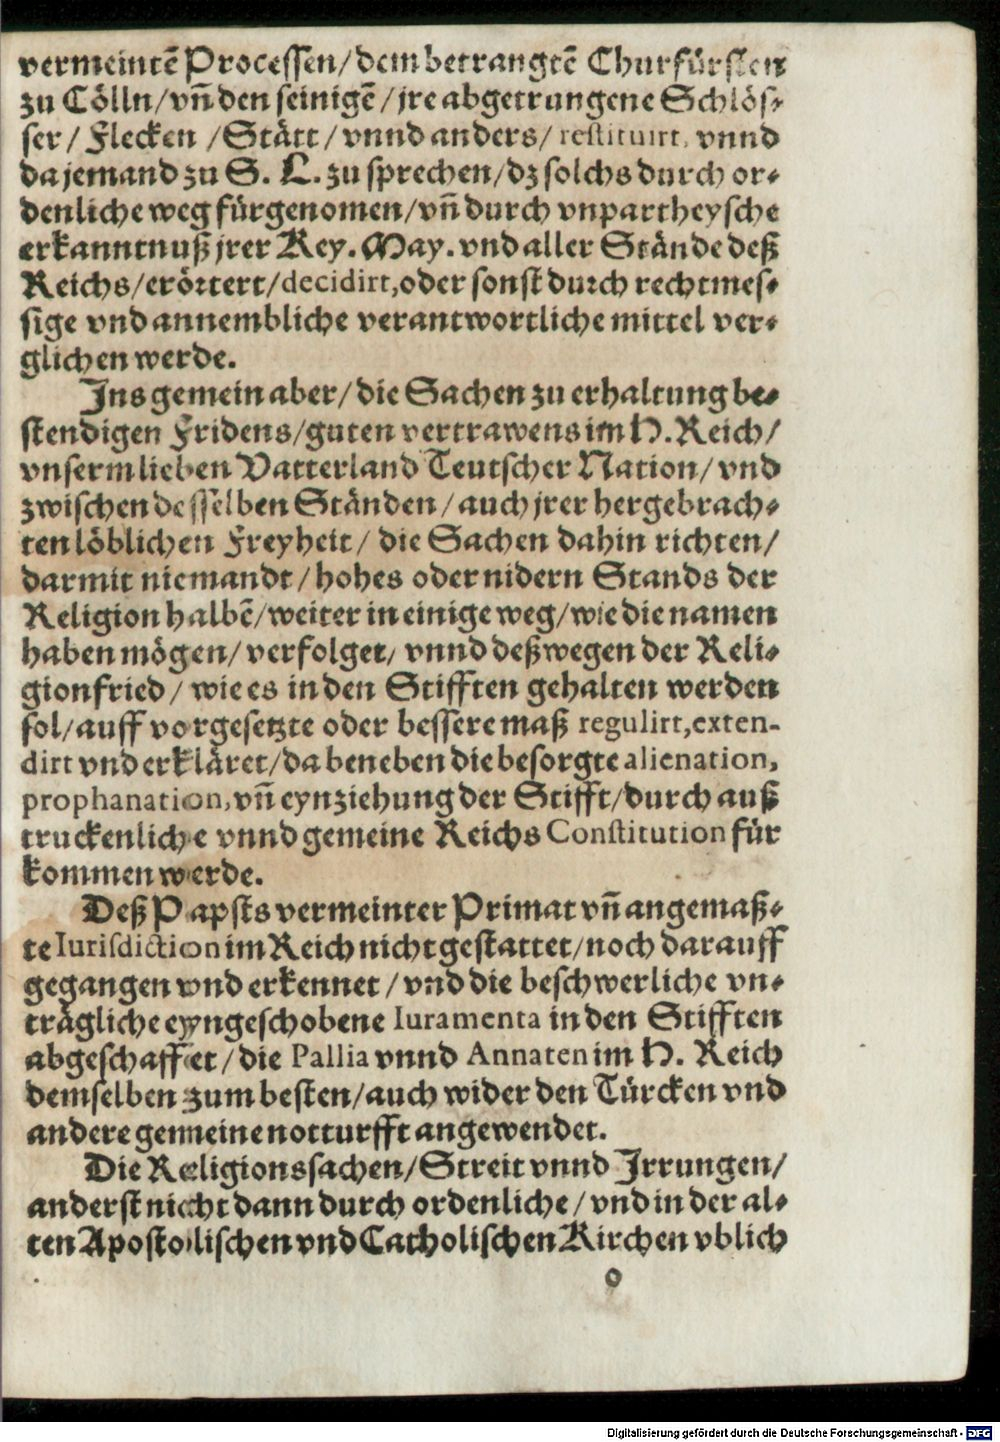 vermeintẽ Processen/dem betrangtẽ Churfürsten
zu Cölln/vñ den seinigẽ/jre abgetrungene Schlös-
ser/ Flecken /Stätt/vnnd anders/restituirt, vnnd
da jemand zu S. L. zu sprechen/dz solchs durch or-
denliche weg fürgenomen/vñ durch vnpartheysche
erkanntnuß jrer Key. May. vnd aller Stände deß
Reichs/erörtert/decidirt,oder sonst durch rechtmes-
sige vnd annembliche verantwortliche mittel ver-
glichen werde.
Ins gemein aber/die Sachen zu erhaltung be-
stendigen Fridens/guten vertrawens im H. Reich/
vnserm lieben Vatterland Teutscher Nation/vnd
zwischen desselben Ständen/auch jrer hergebrach-
ten löblichen Freyheit/ die Sachen dahin richten/
darmit niemandt/hohes oder nidern Stands der
Religion halbẽ/weiter in einige weg/wie die namen
haben mögen/verfolget/ vnnd deßwegen der Reli-
gionfried/ wie es in den Stifften gehalten werden
sol/auff vorgesetzte oder bessere maß regulirt,exten-
dirt vnd erkläret/da beneben die besorgte alienation,
prophanation,vñ eynziehung der Stifft/durch auß
truckenliche vnnd gemeine Reichs Constitution für
kommen werde.
Deß Papsts vermeinter Primat vñ angemaß-
te Iurisdiction im Reich nicht gestattet/noch darauff
gegangen vnd erkennet/vnd die beschwerliche vn-
trägliche eyngeschobene Iuramenta in den Stifften
abgeschaffet/die Pallia vnnd Annaten im H. Reich
demselben zum besten/auch wider den Türcken vnd
andere gemeine notturfft angewendet.
Die Religionssachen/Streit vnnd Irrungen/
anderst nicht dann durch ordenliche/vnd in der al-
ten Apostolischen vnd Catholischen Kirchen vblich
o
Digitalisierung gefördert durch die Deutsche Forschungsgemeinschaft - DFG